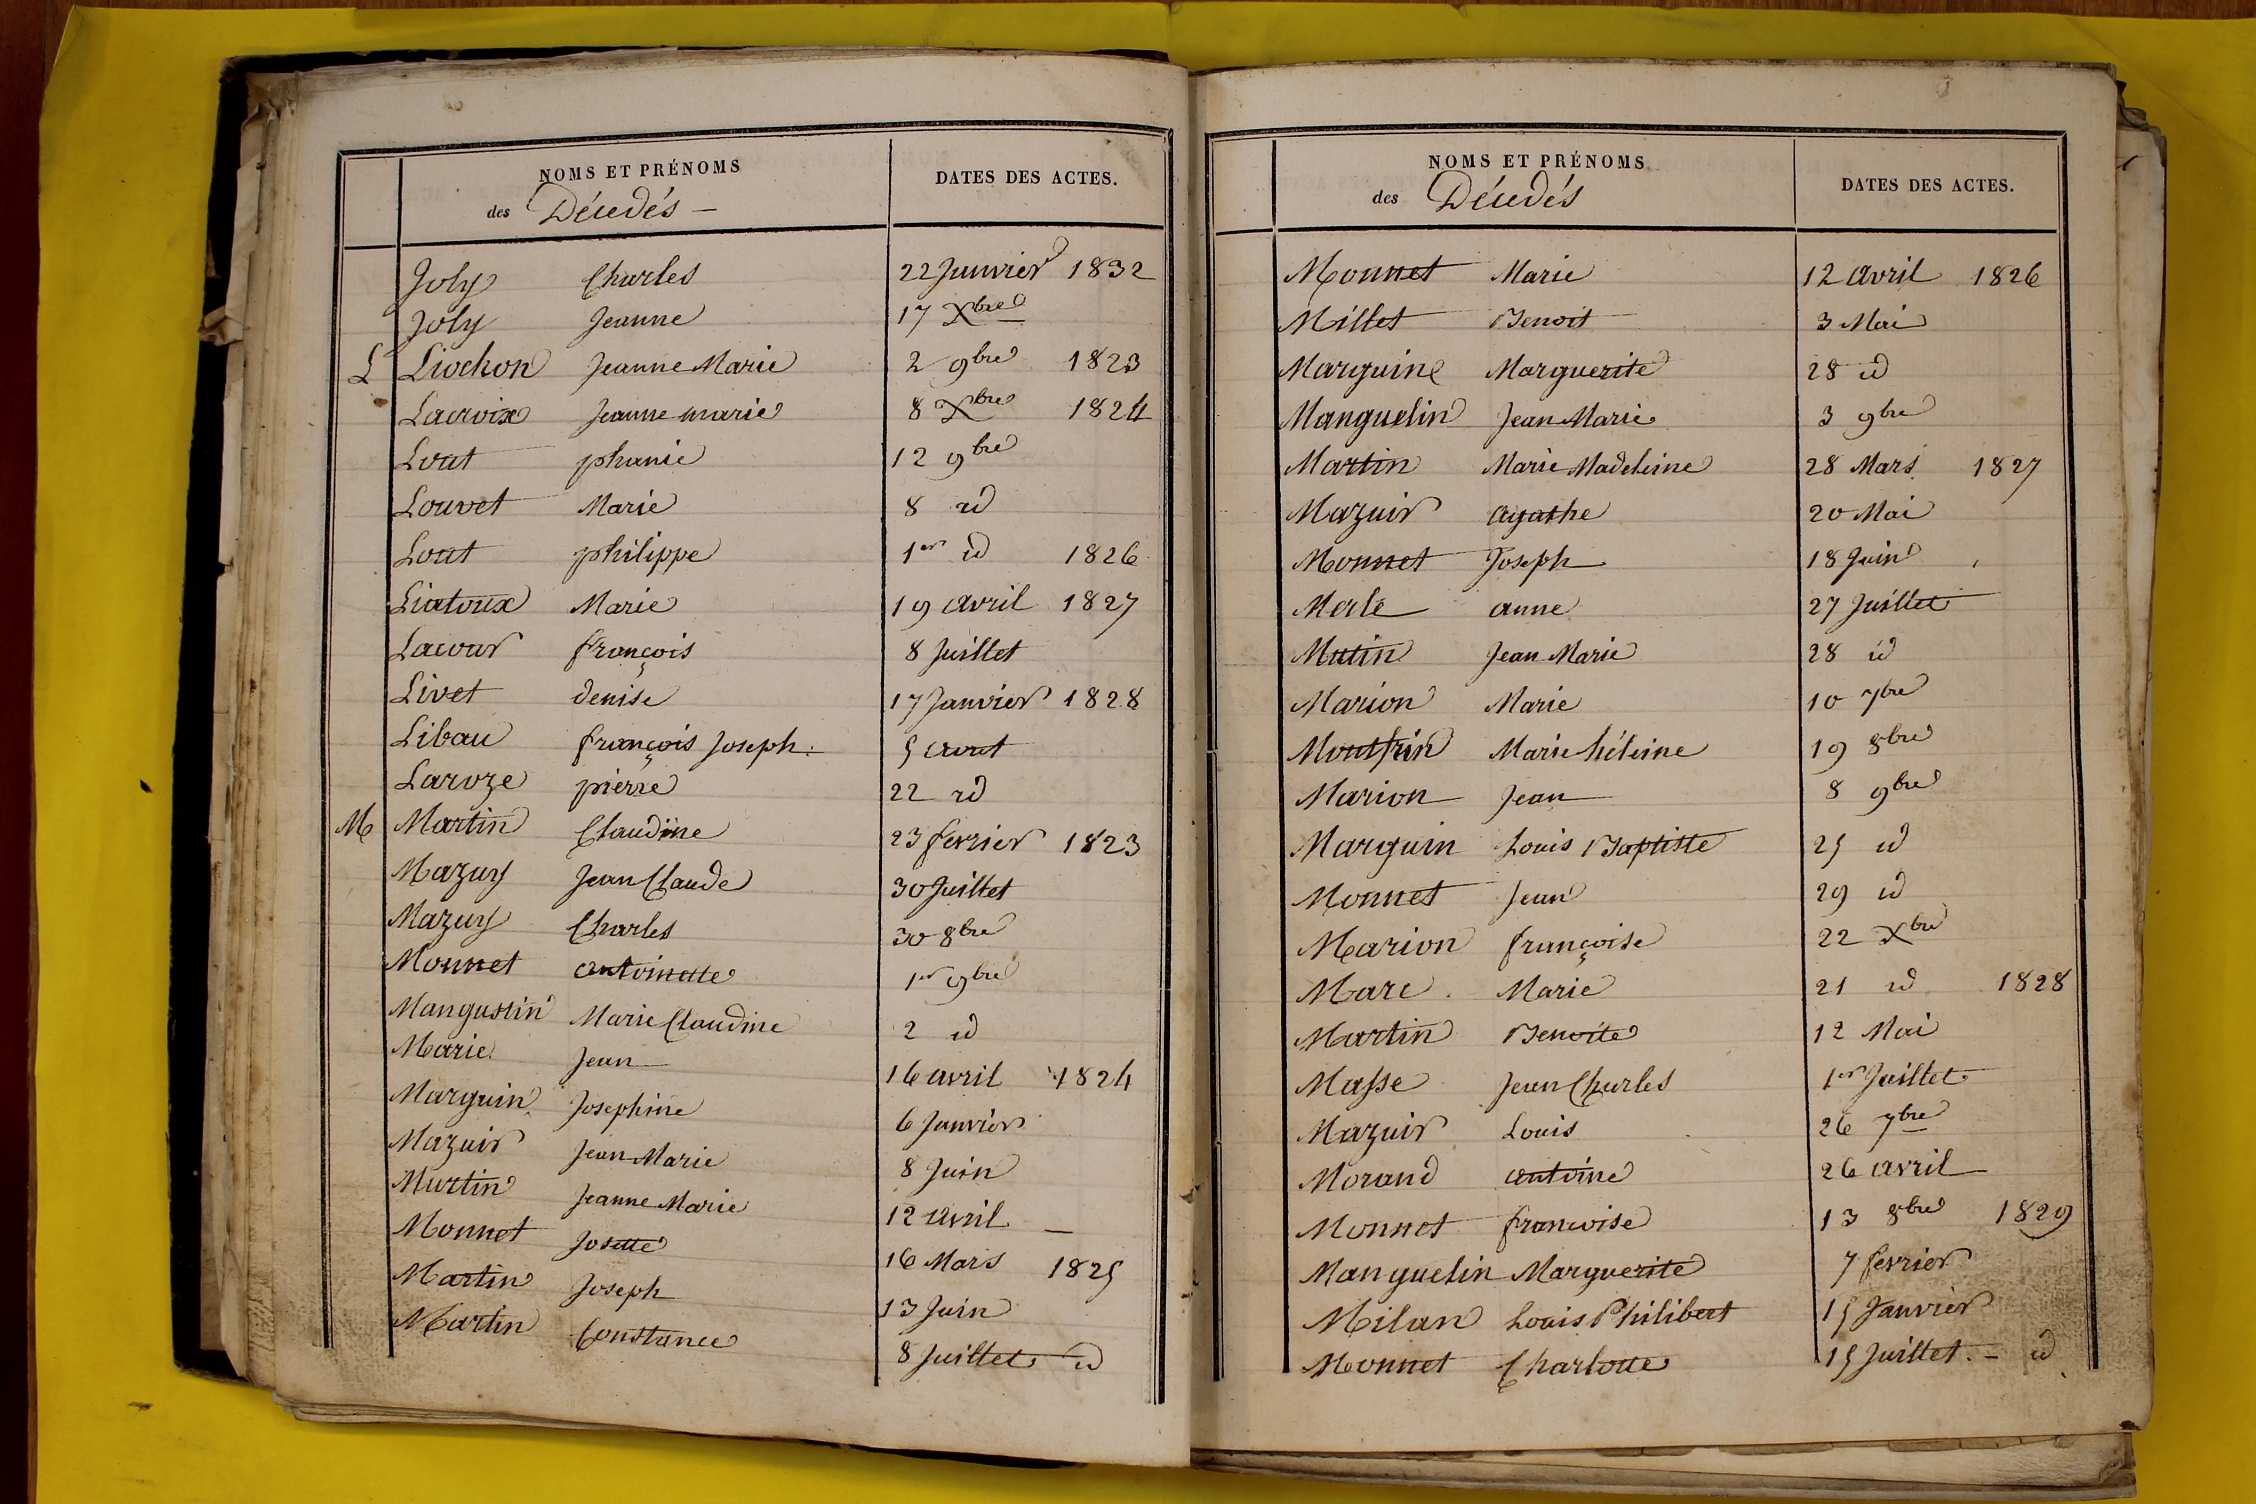 NOMS ET PRÉNOMS
des Décédés —
DATES DES ACTES.
Joly Charles 22 Janvier 1832
Joly Jeanne 17 Xbre
L Liochon Jeanne Marie 2 9bre 1823
Lacroix Jeanne marie 8 Xbre 1824
Lout phanie 12 9bre
Louvet Marie 8 id
Lout philippe 1er id 1826
Liatoux Marie 19 avril 1827
Lacour françois 8 Juillet
Livet denise 17 Janvier 1828
Libau françois Joseph 5 aout
Laroze pierre 22 id
M Martin Claudine 23 fevrier 1823
Mazuy Jean Claude 30 Juillet
Mazuy Charles 30 8bre
Monnet antoinette 1er 9bre
Mangustin Marie Claudine 2 id
Marie Jean 16 avril 1824
Marguin Josephine 6 Janvier
Mazuir Jean Marie 8 Juin
Martin Jeanne Marie 12 avril —
Monnet Josette 16 Mars 1825
Martin Joseph 13 Juin
Martin Constance 8 Juillet id
NOMS ET PRÉNOMS
des Décédés
DATES DES ACTES.
Monnet Marie 12 avril 1826
Millet Benoit 3 Mai
Marguine Marguerite 28 id
Manguelin Jean Marie 3 9bre
Martin Marie Madeleine 28 Mars 1827
Mazuir agathe 20 Mai
Monnet Joseph 18 Juin
Merle anne 27 Juillet
Mutin Jean Marie 28 id
Marion Marie 10 7bre
Montfrin Marie héleine 19 8bre
Marion Jean 8 9bre
Marguin Louis Baptiste 25 id
Monnet Jean 29 id
Marion françoise 22 Xbre
Marc Marie 21 id 1828
Martin Benoite 12 Mai
Masse Jean Charles 1er Juillet
Mazuir Louis 26 7bre
Morand antoine 26 avril
Monnet francoise 13 8bre 1829
Manguelin Marguerite 7 fevrier
Milan Louis Philibert 15 Janvier
Monnet Charlotte 15 Juillet. — id